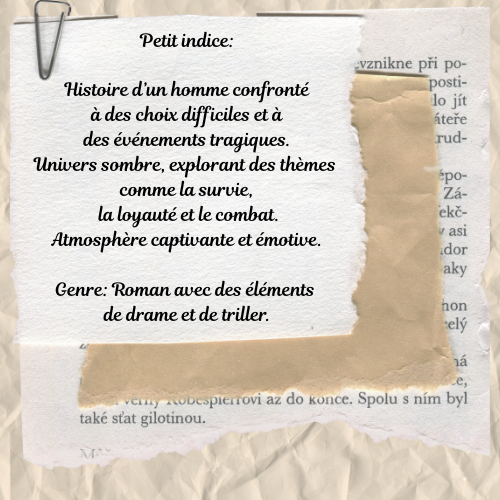 Petit indice:
Histoire d'un homme confronté
à des choix difficiles et à
des événements tragiques.
Univers sombre, explorant des thèmes
comme la survie,
la loyauté et le combat.
Atmosphère captivante et émotive.
Genre: Roman avec des éléments
de drame et de triller.
vznikne při po-
posti-
lo jít
rud-
Zá-
asi
aky
verný Robespierrovi až do konce. Spolu s ním byl
také sťat gilotinou.